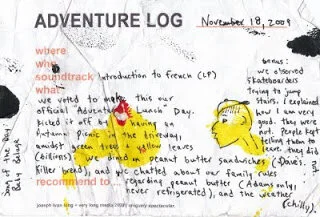 ADVENTURE LOG
November 18, 2009
where
who
soundtrack Introduction to French (LP)
what
we voted to make this our
official Adventure Lunch Day.
Kicked it off by having an
Autumn Picnic in the driveway,
amidst green trees & yellow leaves
we dined on peanut butter sandwiches (Dave's
Killer bread), and we chatted about our family rules
recommend to regarding peanut butter (Adams only;
never refrigerated), and the weather
(chilly).
bonus:
we observed
skateboarders
trying to jump
stairs. I explained
how I am very
good. they were
not. People kept
telling them to
leave. they did.
Song of the Day:
Baby Beluga
joseph ivan long - very long media 2009